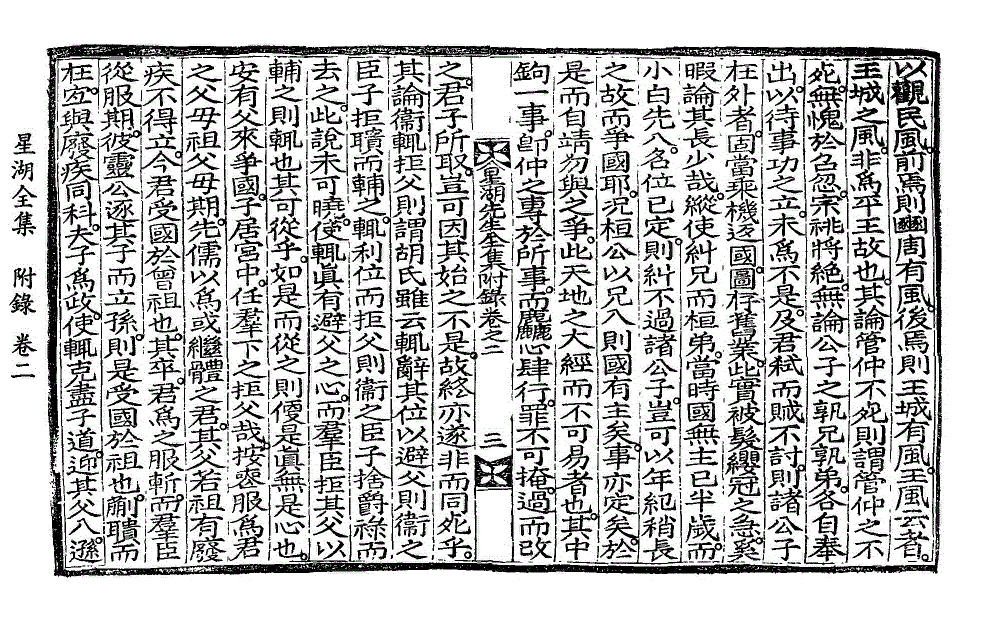 以觀民風前焉則豳周有風後焉則王城有風王風云者
王城之風非爲平王故也其論管仲不死則謂管仲之不
死無愧於召忽宗祧將絶無論公子之孰兄孰弟各自奉
出以待事功之立未爲不是及君弑而賊不討則諸公子
在外者固當乘機返國圖存舊業此實被髮纓冠之急奚
暇論其長少哉縱使糾兄而桓弟當時國無主已半歲而
小白先入名位已定則糾不過諸公子豈可以年紀稍長
之故而爭國耶况桓公以兄入則國有主矣事亦定矣於
是而自靖勿與之爭此天地之大經而不可易者也其中
鉤一事卽仲之專於所事而麤心肆行罪不可掩過而改
星湖先生全集附錄卷之二
三
之君子所取豈可因其始之不是故終亦遂非而同死乎
其論衛輒拒父則謂胡氏雖云輒辭其位以避父則衛之
臣子拒聵而輔之輒利位而拒父則衛之臣子舍爵祿而
去之此說未可曉使輒眞有避父之心而羣臣拒其父以
輔之則輒也其可從乎如是而從之則優是眞無是心也
安有父來爭國子居宮中任羣下之拒父哉按喪服爲君
之父母祖父母期先儒以爲或繼體之君其父若祖有廢
疾不得立今君受國於曾祖也其卒君爲之服斬而羣臣
從服期彼靈公逐其子而立孫則是受國於祖也蒯聵而
在宜與廢疾同科夫子爲政使輒克盡子道迎其父入遜
星湖全集 附錄 卷二